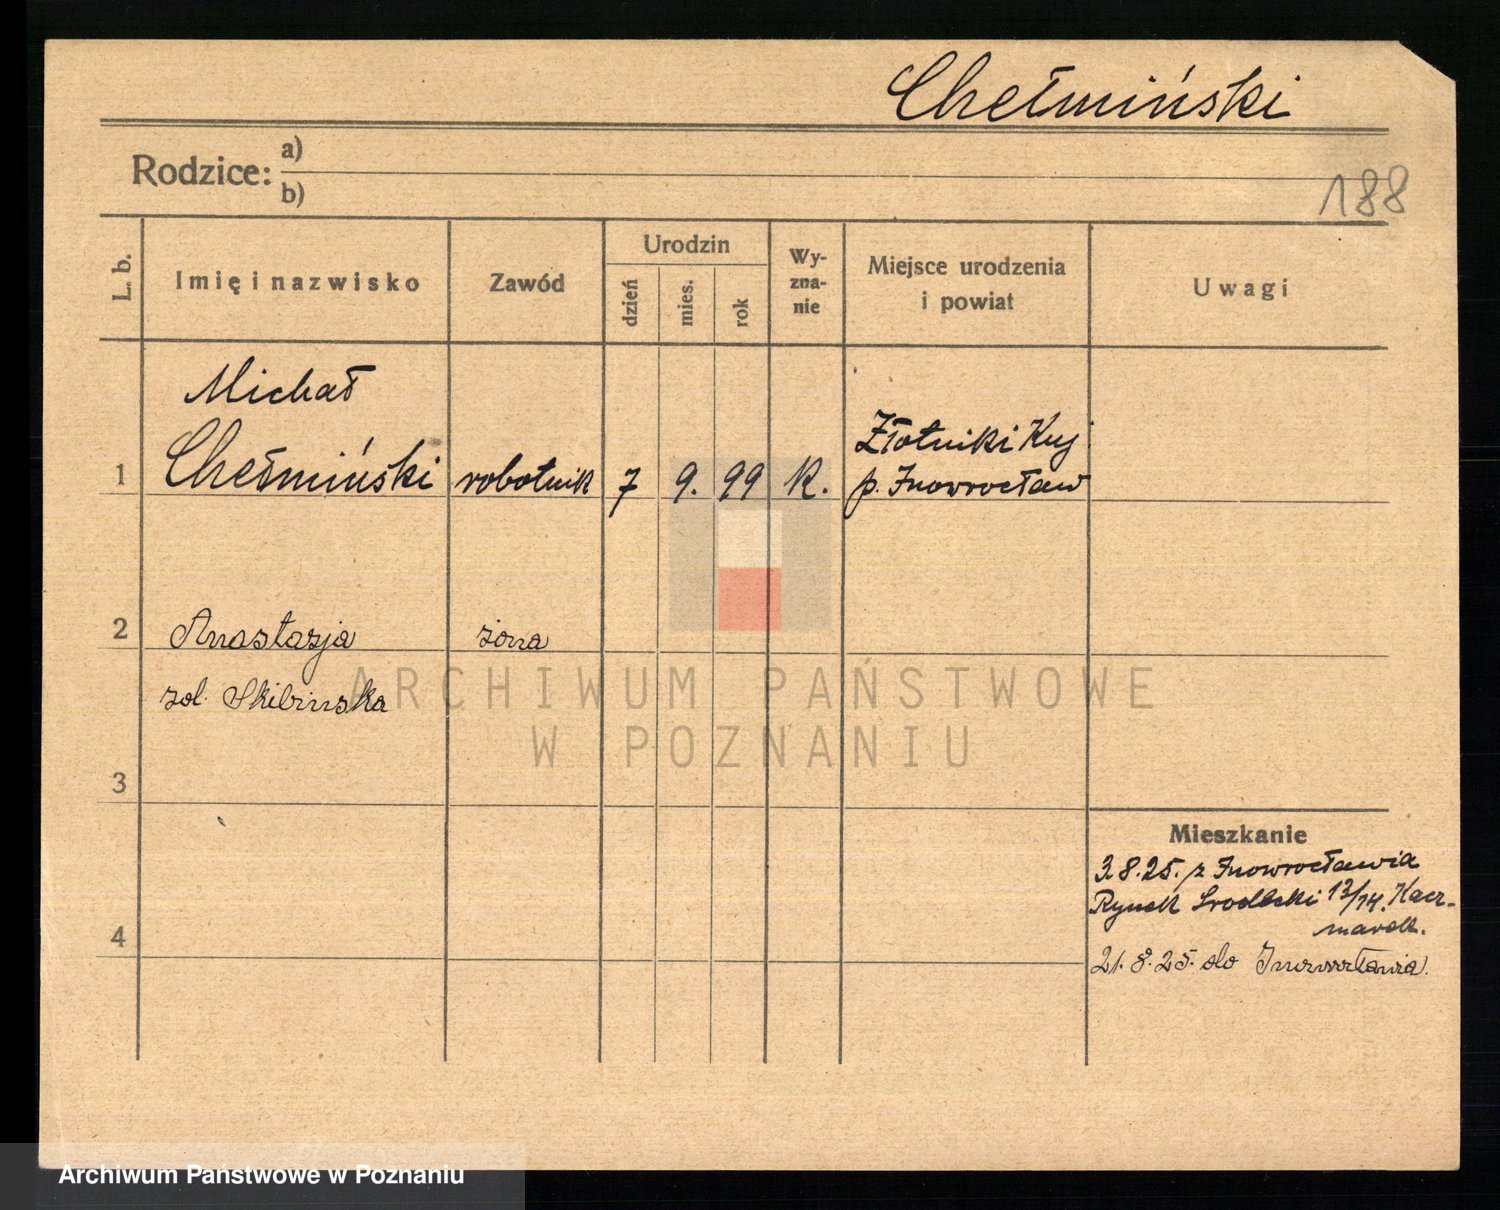 Chełmiński
Rodzice:
a)
b)
188
L. b.
Imię i nazwisko
Zawód
Urodzin
dzień
mies.
rok
Wy-
zna-
nie
Miejsce urodzenia
i powiat
Uwagi
Michał
1 Chełmiński robotnik 7 9. 99 K.
Złotniki Kuj
p. Inowrocław
2 Anastazja żona
zol. Skibinska
3
4
Mieszkanie
3.8.25. z Inowrocławia
Rynek Srodecki 13/14. Kacz-
marek.
21.8.25. do Inowrocławia.
ARCHIWUM PAŃSTWOWE
W POZNANIU
Archiwum Państwowe w Poznaniu